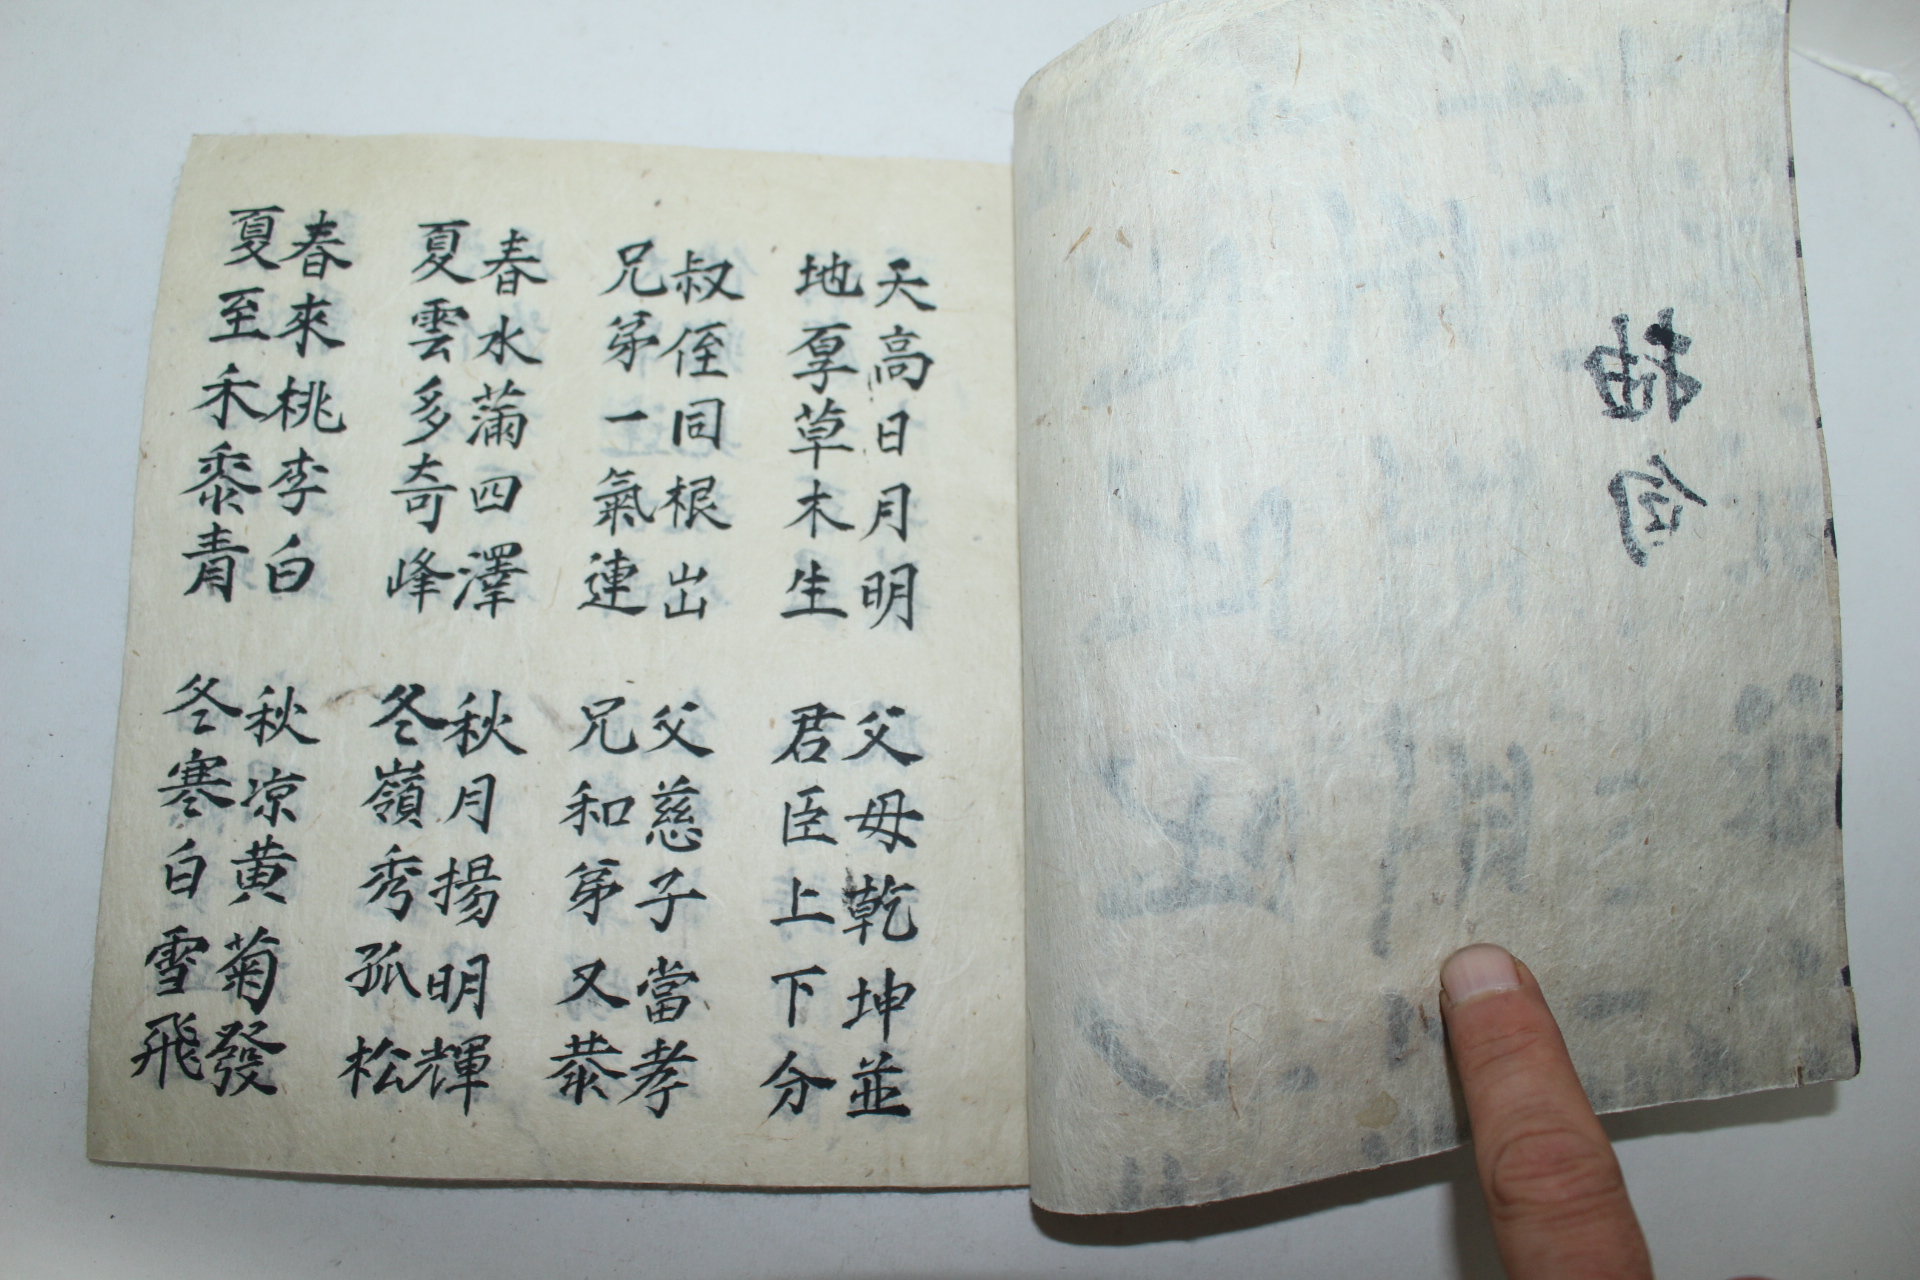 抽句
天高日月明
地厚草木生
父母乾坤並
君臣上下分
叔侄同根出
兄弟一氣連
父慈子當孝
兄和弟又恭
春水滿四澤
夏雲多奇峰
秋月揚明輝
冬嶺秀孤松
春來桃李白
夏至禾黍青
秋凉黄菊發
冬寒白雪飛